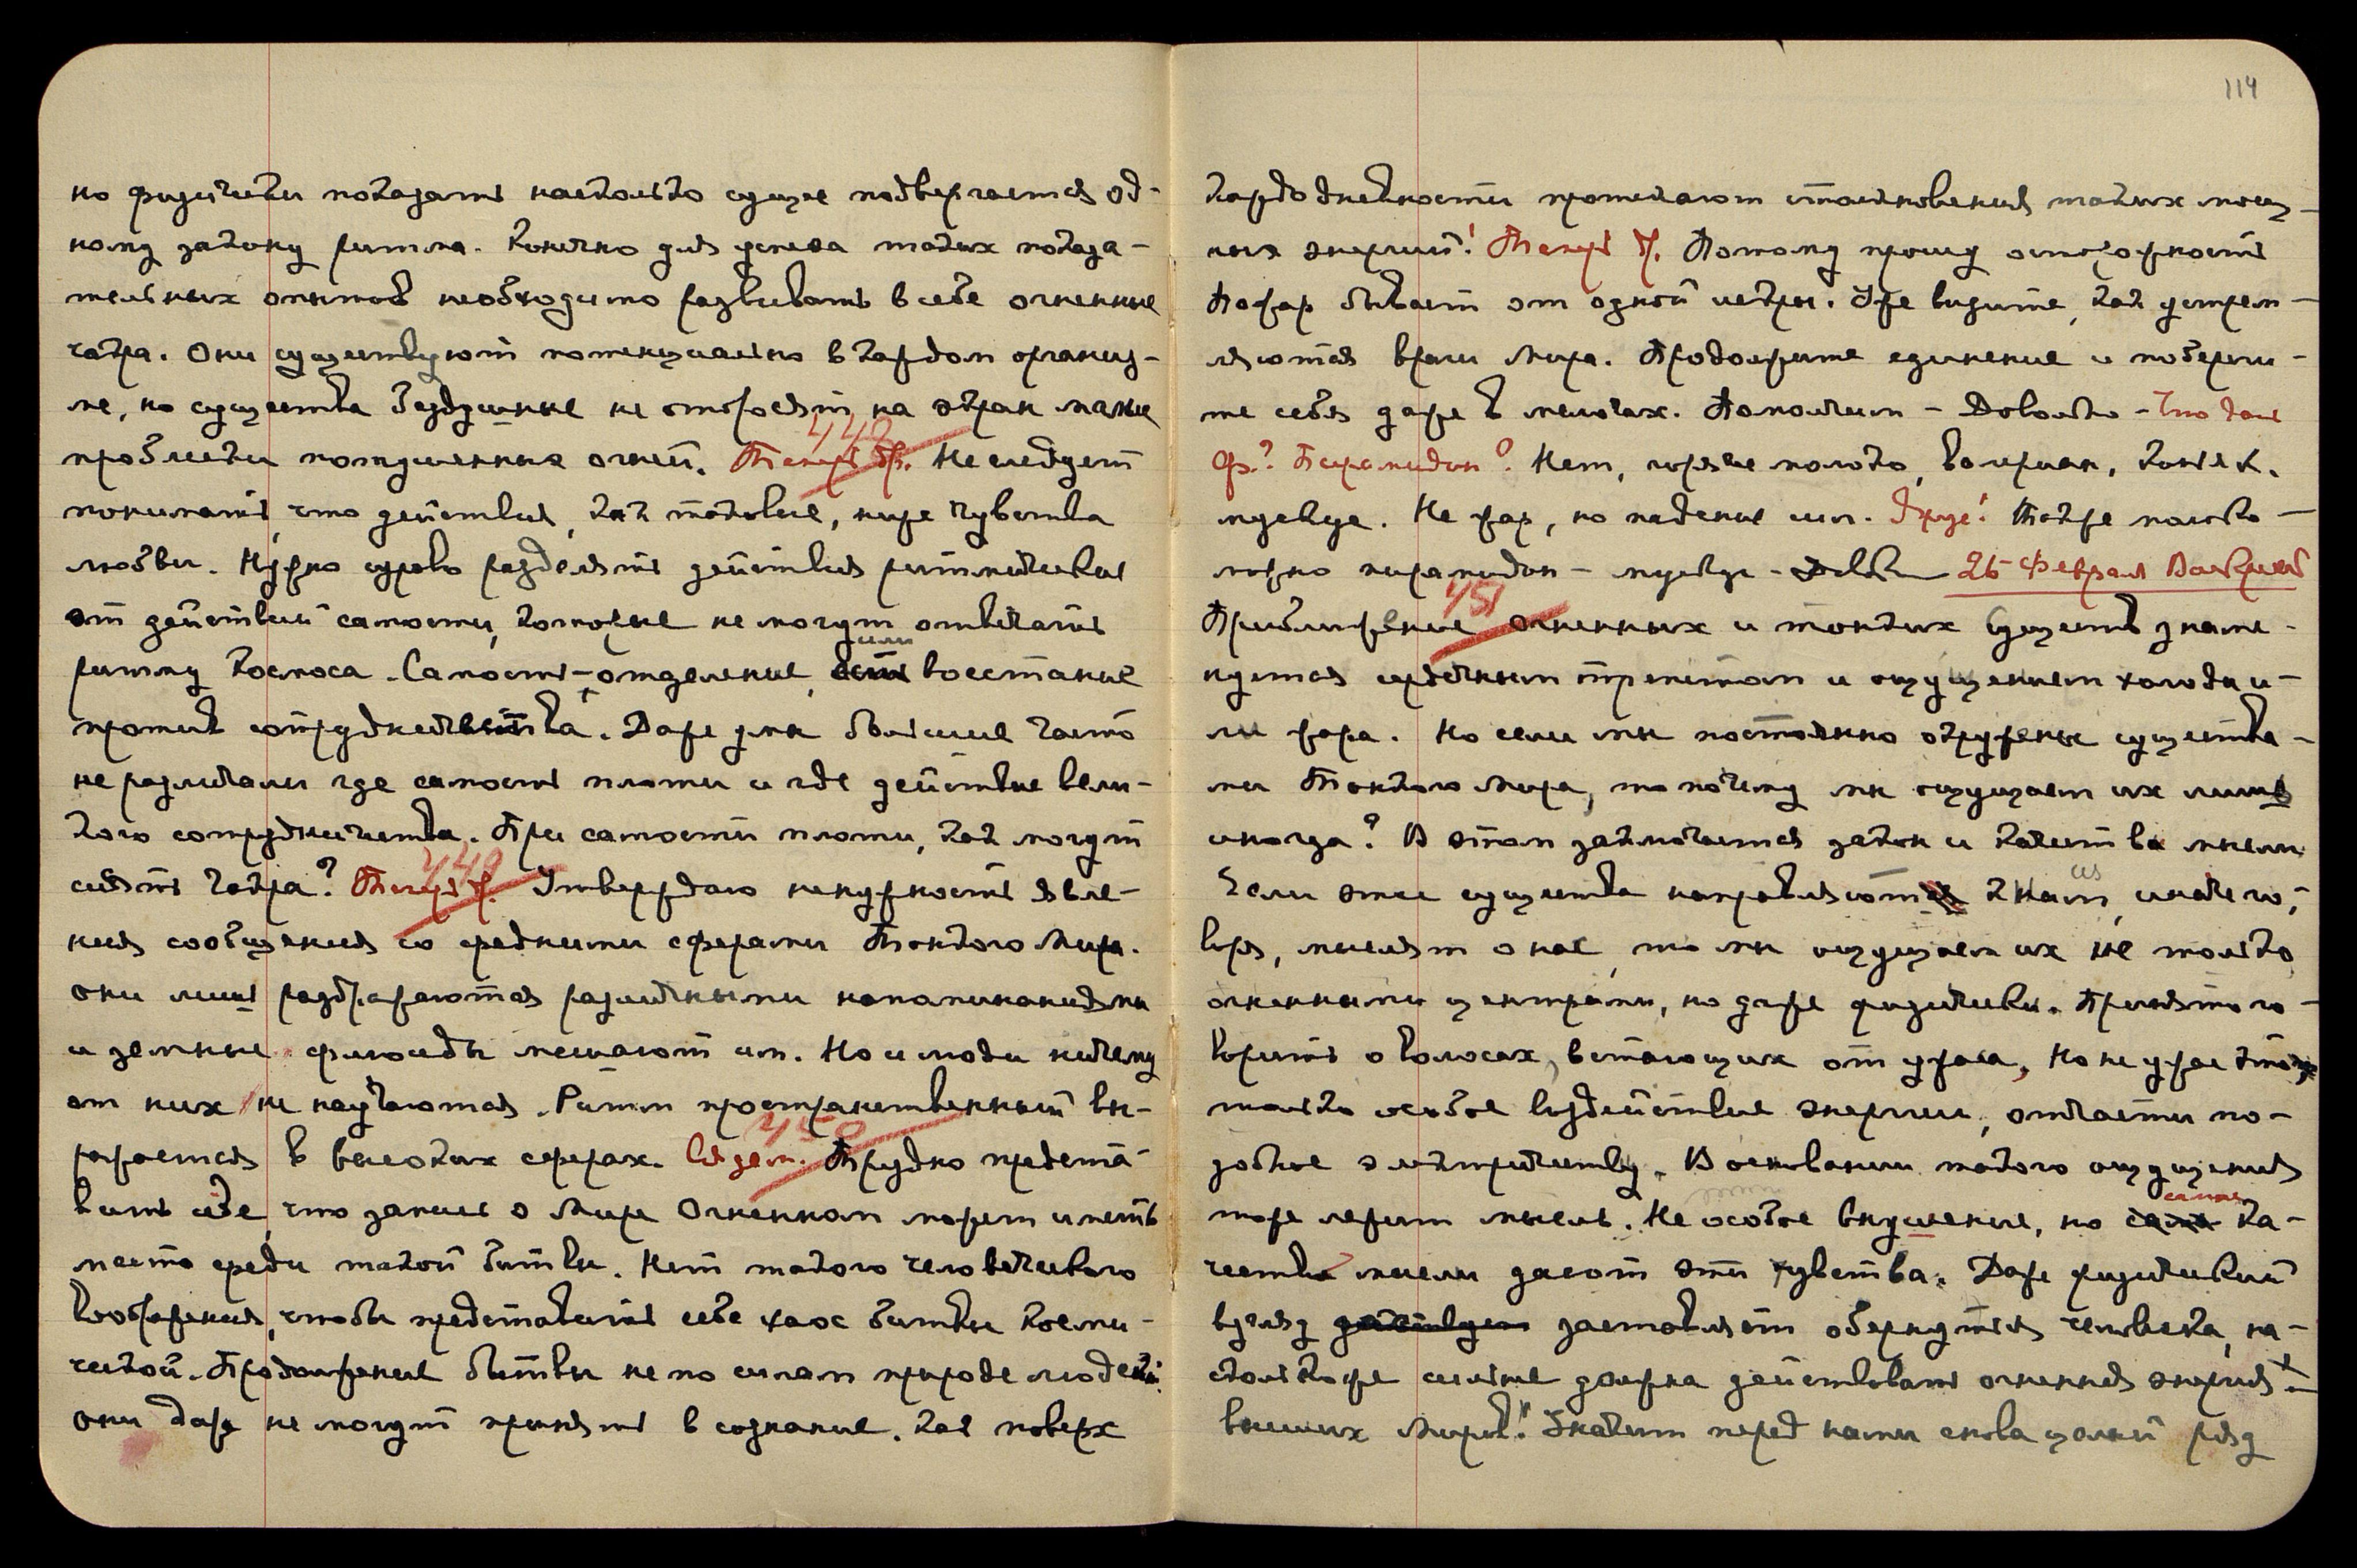 114
но физически показать насколько сущее подвергается од-
ному закону ритма. Конечно для успеха таких показа-
тельных опытов необходимо развивать в себе огненные
чакра. Они существуют потенциально в каждом организ-
ме, но существа бездушные не отобразят на экран маже
проблески потушенных огней. 448 Теперь др. Не следует
понимать, что действия, как таковые, ниже чувства
любви. Нужно сурово разделять действия ритмические
от действий самости, которые не могут отвечать
ритму Космоса. Самость - отделение, или восстание
против сотрудничества. Даже умы большие часто
не различали где самость плоти и где действие вели-
кого сотрудничества. При самости плоти, как могут
сиять чакра? 449 Теперь др. Утверждаю ненужность явле-
ния сообщения со средними сферами Тонкого Мира.
Они лишь раздражаются различными напоминаниями
и земные флюиды мешают им. Но и люди ничему
от них не научаются. Ритм пространственный вы-
ражается в высоких сферах. 450 Трудно предста-
вить себе, что запись о Мире Огненном может иметь
место среди такой битвы. Нет такого человеческого
воображения, чтобы представить себе хаос битвы косми-
ческой. Продолжение битвы не по силам природе людей:
они даже не могут принять в сознание, как поверх
каждодневности протекают столкновения таких мощ-
ных энергий! Теперь др. Потому прошу осторожность
Пожар бывает от одной искры. Уже видите, как устрем-
ляются враги Мира. Продолжите единение и поберeги-
те себя даже в мелочах. Помолчим - Довольно - Что дать
Ф.? Пирамидон? Нет, горячее молоко, валериан, коньяк.
мускус. Не жар, но падение сил. Друг! Также полез-
но пирамидон - мускус - Довольно 26 Февраля
451 Приближение огненных и тонких существ знаме-
нуется сердечным трепетом и ощущением холода и-
ли жара. Но если мы постоянно окружены существа-
ми Тонкого Мира, то почему мы ощущаем их лишь
иногда? В этом заключается закон и качества мысли
Если эти существа направляются к нам, иначе го-
воря, мыслят о нас, то мы ощущаем их не только
огненными центрами, но даже физически. Принято го-
ворить о волосах, встающих от ужаса, но не ужас это,
только особое воздействие энергии, отчасти по-
добное электричеству. В основании такого ощущения
тоже лежит мысль. Не особое внушение, но самые ка-
чества мысли дают эти чувства. Даже физический
взгляд действует заставляет обернуться человека, на-
сколько же сильнее должна действовать огненная энергия
высших Миров! Значит перед нами снова целый ряд